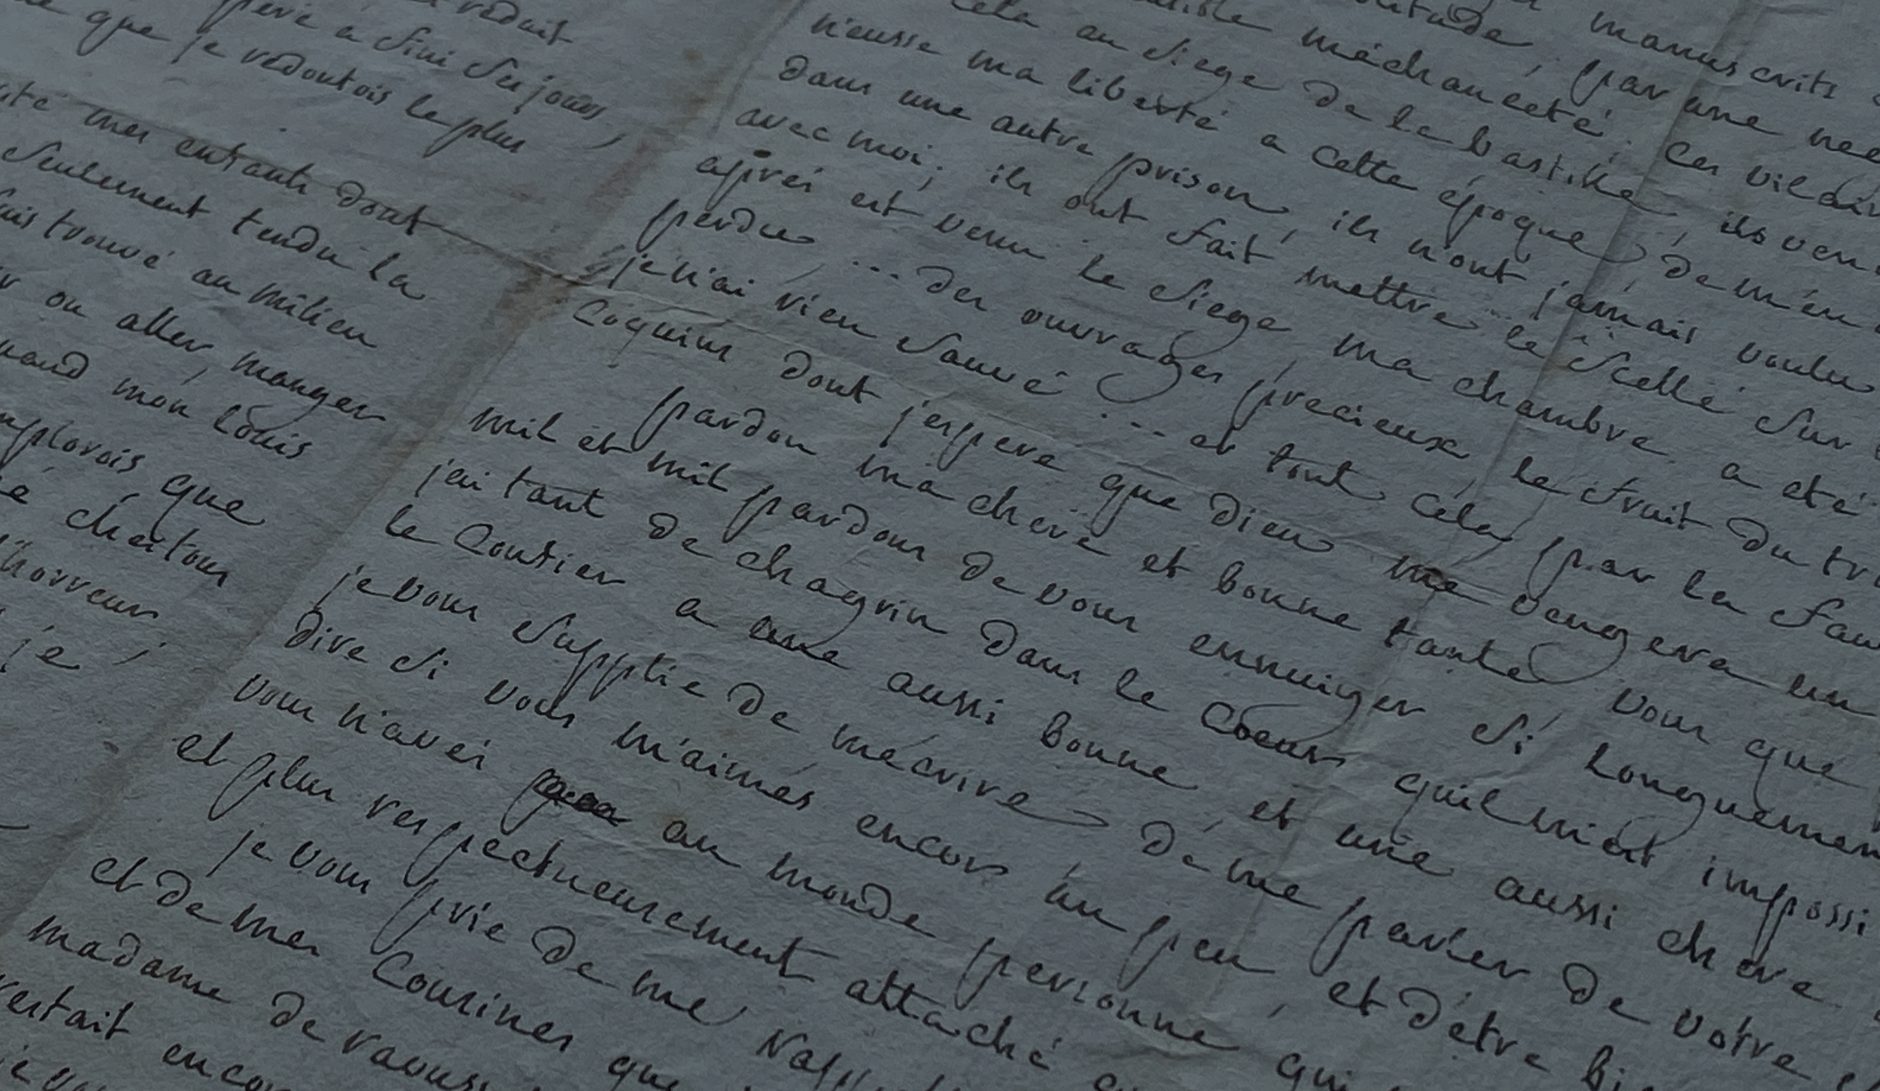 reduit
a fini ses jours,
que je redoutois le plus
mes enfants dont
seulement tendu la
trouvé au milieu
ou aller manger
mon louis
que
chertons
l'horreur
je
manuscrits
par une
méchanceté; ces vilains
cela au siege de la bastille, ils
n'eusse ma liberté a cette époque, de m'en
dans une autre prison, ils n'ont jamais voulu
avec moi; ils ont fait mettre le scellé sur
après est venu le siege, ma chambre a été
perdu ... des ouvrages precieux, le fruit du
je n'ai rien sauvé ... et tout cela par la
coquins dont j'espere que dieu me vengera un
pardon ma chere et bonne tante vous que
mil et mil pardons de vous ennuiyer si longuement
jai tant de chagrin dans le coeur quil m'est impossi
le confier a une aussi bonne et une aussi chere
je vous supplie de mecrire de me parler de votre
dire si vous m'aimés encor un peu, et d'être
vous n'avés au monde personne qui
et plus respectueusement attaché
je vous prie de me
et de mes cousines que
madame de
restait encor
je